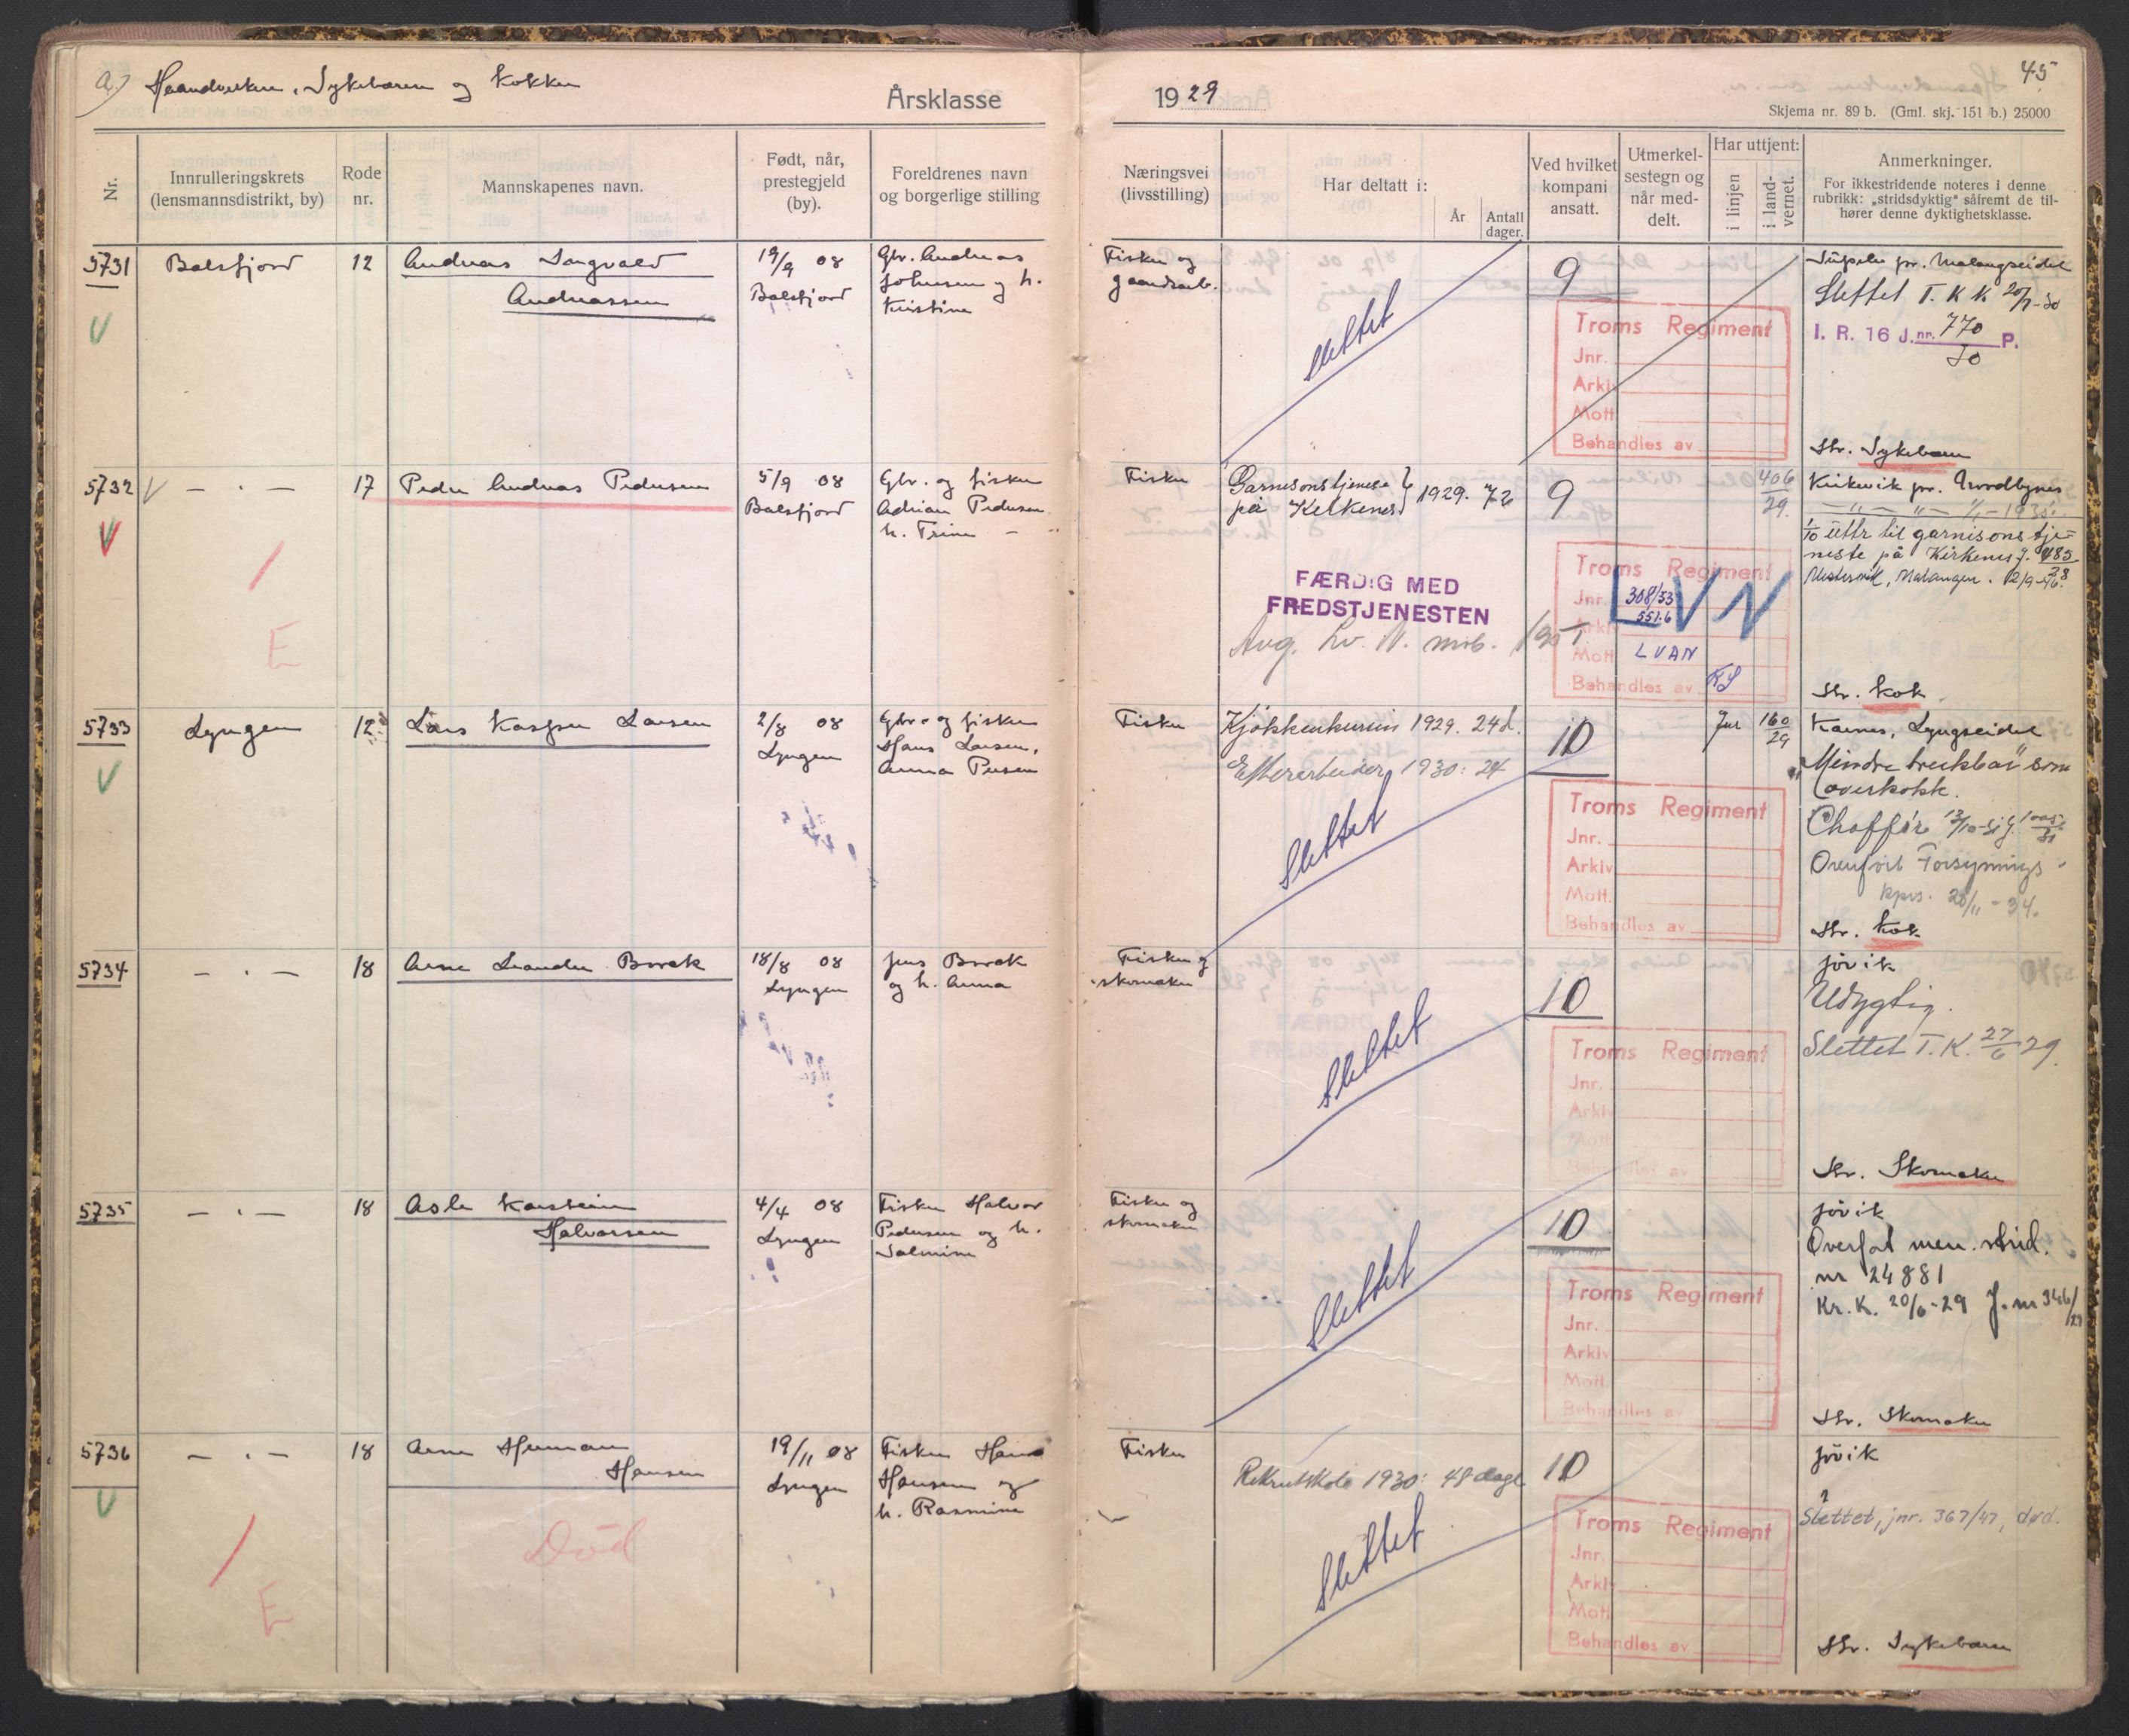 a) Haandverkere, Sykebærere og Kokker
Årsklasse
1929
45
Skjema nr. 89 b. (Gml. skj. 151 b.) 25000
Nr.
Innrulleringskrets
(lensmannsdistrikt, by)
Rode
nr.
Mannskapenes navn.
Født, når,
prestegjeld
(by).
Foreldrenes navn
og borgerlige stilling
Næringsvei
(livsstilling)
Har deltatt i:
År
Antall
dager.
Ved hvilket
kompani
ansatt.
Utmerkel-
sestegn og
når med-
delt.
Har uttjent:
i linjen
i land-
vernet.
Anmerkninger.
For ikkestridende noteres i denne
rubrikk: „stridsdyktig" såfremt de til-
hører denne dyktighetsklasse.
5731
V
Balsfjord
12
Andreas Sangvald
Andreassen
19/9 08
Balsfjord
Gbr. Andreas
Johnsen og h.
Kristine
Fisker og
gaardsarb.
Slettet
9
Troms Regiment
Jnr.
Arkiv
Mott.
Behandles av
pr. Malangseidet
Slettet T. K. K. 20/7-30
I. R. 16 J.nr. 770 P.
30
Str. Sykebærer
5732
V
V
— . —
17
Peder Andreas Pedersen
/
E
5/9 08
Balsfjord
Gbr. og fisker
Adrian Pedersen
h. Trine —
Fisker
Garnisonstjeneste
på Kirkenes
1929. 72
FÆRDIG MED
FREDSTJENESTEN
Avg. Lv. N. mob. 1951
9
Troms Regiment
Jnr.
Arkiv
Mott.
Behandles av
308/53
551.6
LVAN
VN
406
29.
pr. Nordbynes
1/10 uttr til garnisonstje-
neste på Kirkenes J. 485
28
Mestervik, Malangen.
Str. Kok
5733
V
Lyngen
12
Lars Kasper Larsen
2/8 08
Lyngen
Gbr. og fisker
Hans Larsen,
Anna Persen
Fisker
Kjøkkenkursus 1929. 24d.
Efterarbeider 1930: 24
Slettet
10
Troms Regiment
Jnr.
Arkiv
Mott.
Behandles av
160
29
Karnes, Lyngseidet
"Mindre brukbar" som
overkokk.
Chaffør
Overført Forsynings-
kpn. 28/11-34.
Str. Kok
5734
— . —
18
Arne Leander Borck
18/8 08
Lyngen
Jens Borck
og h. Anna
Fisker og
skomaker
Slettet
10
Troms Regiment
Jnr.
Arkiv
Mott.
Behandles av
Jøvik
Udygtig.
Slettet T. K. 27/6 29.
Str. Skomaker
5735
— . —
18
Asle Karstein
Halvorsen
4/4 08
Lyngen
Fisker Halvor
Pedersen og h.
Salmine
Fisker og
skomaker
Slettet
10
Troms Regiment
Jnr.
Arkiv
Mott.
Behandles av
Jøvik
Overført men. strid.
nr 24881
Kr. K. 20/6-29 J. nr 346/29
Str. Skomaker
5736
V
— . —
18
Arne Herman
Hansen
Død
/
E
19/11 08
Lyngen
Fisker Hans
Hansen og
h. Rasmine
Fisker
Rekrutskole 1930: 48 dage
Slettet
10
Troms Regiment
Jnr.
Arkiv
Mott.
Behandles av
Jøvik
Slettet, jnr. 367/47, død.
Str. Sykebærer